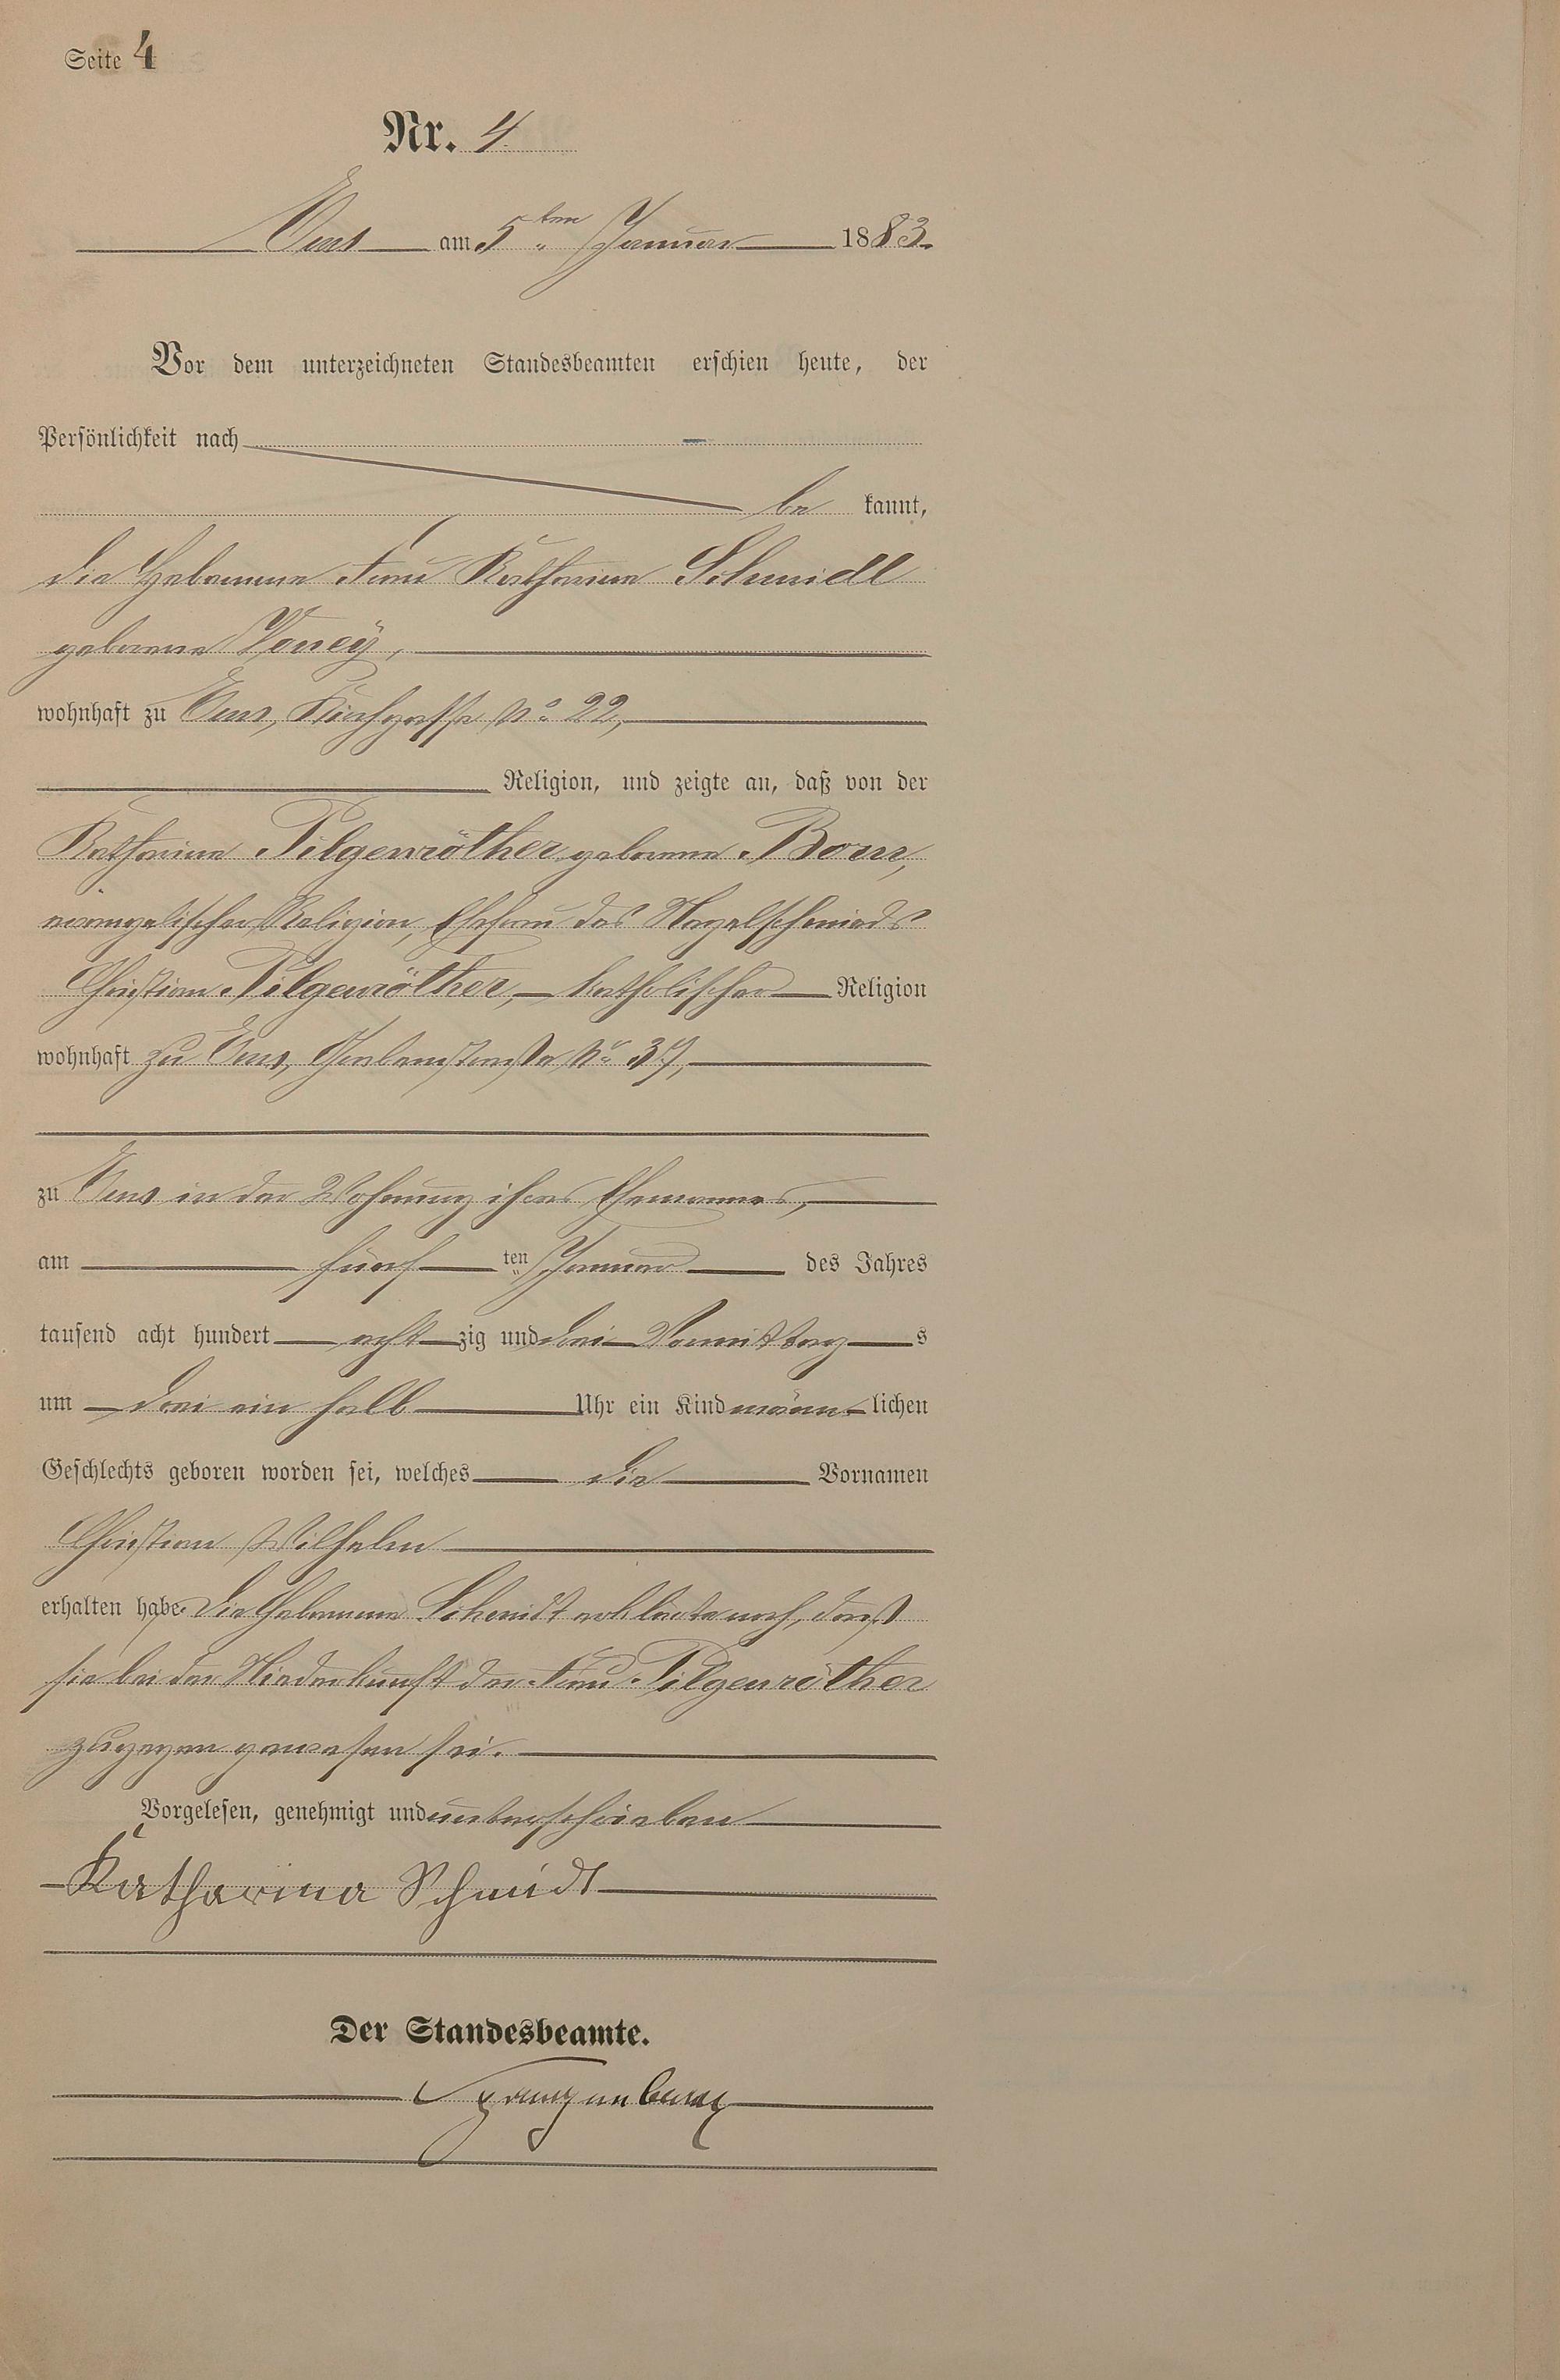 Seite 4
Nr. 4.
Ems am 5ten Januar 1883.
Vor dem unterzeichneten Standesbeamten erschien heute, der
Persönlichkeit nach
be kannt,
die Hebamme Frau Katharina Schmidt
geborene Voney,
wohnhaft zu Ems, Kirchgasse No 22,
Religion, und zeigte an, daß von der
Katharina Pilgenröther geborene Born,
evangelischer Religion, Ehefrau des Nagelschmieds
Christian Pilgenröther, katholischer Religion
wohnhaft zu Ems, No 37,
zu Ems in der Wohnung ihres Ehemannes,
am fünf ten Januar des Jahres
tausend acht hundert acht zig und drei Vormittag s
um drei ein halb Uhr ein Kind männ lichen
Geschlechts geboren worden sei, welches die Vornamen
Christian Wilhelm
erhalten habe. Die Hebamme Schmidt erklärte noch, daß
sie bei der Niederkunft der Frau Pilgenröther
zugegen gewesen sei.
Vorgelesen, genehmigt und unterschrieben
Katharina Schmidt
Der Standesbeamte.
Spangenberg